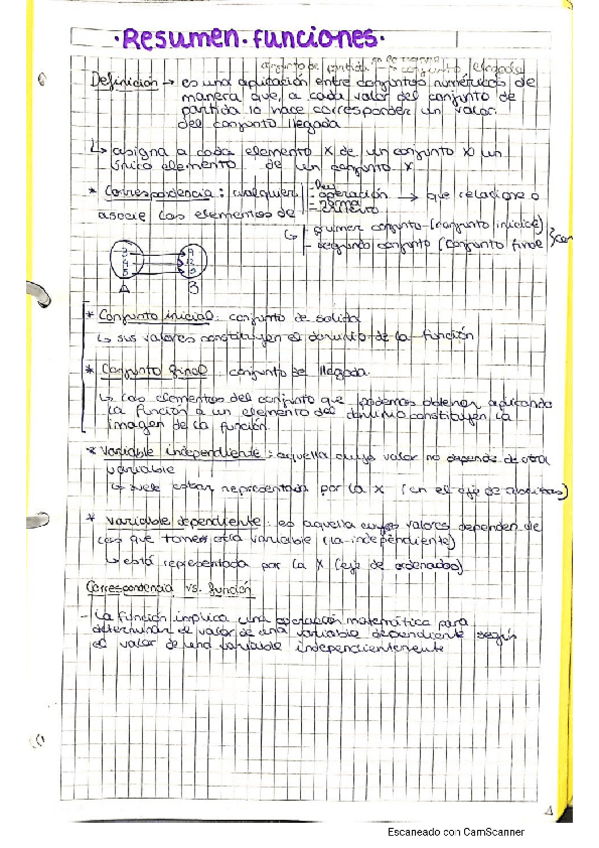 ·Resumen·funciones·
conjunto de partida → conjunto llegada
Definición → es una aplicación entre conjuntos numéricos de
manera que, a cada valor del conjunto de
partida le hace corresponder un valor
del conjunto llegada
↳ asigna a cada elemento X de un conjunto X) un
único elemento de un conjunto X
* Correspondencia : cualquier - ley
- operación → que relacione o
- norma
- criterio
asocie los elementos de
↳ - primer conjunto (conjunto inicial)
- segundo conjunto (conjunto final
A B
* Conjunto inicial : conjunto de salida
↳ sus valores constituyen el dominio de la función
* Conjunto final : conjunto de llegada
↳ los elementos del conjunto que podemos obtener aplicando
la función a un elemento del dominio constituyen la
imagen de la función
* variable independiente : aquella cuyo valor no depende de otra
variable
↳ suele estar representada por la X (en el eje de abscisas)
* variable dependiente : es aquella cuyos valores dependen de
los que tomes otra variable (la independiente)
↳ está representada por la X (eje de ordenadas)
Correspondencia vs. función
- La función implica una operación matemática para
determinar el valor de una variable dependiente según
el valor de una variable independientemente
Escaneado con CamScanner